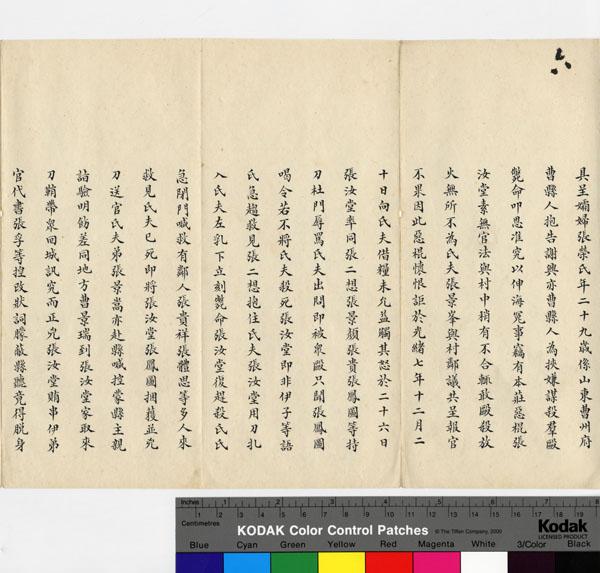 六
具呈孀婦張蔡氏年二十九歲係山東曹州府
曹縣人抱告謝興亦曹縣人為挾嫌謀殺羣毆
斃命叩恩准究以伸海冤事竊有本莊惡棍張
汝堂素無官法與村中稍有不合輒敢毆殺放
火無所不為氏夫張景峯與村鄰議共呈報官
不果因此惡棍懷恨詎於光緒七年十二月二
十日向氏夫借糧未允益觸其忿於二十六日
張汝堂率同張二想張景顏張貴張鳳圖等持
刀杜門辱罵氏夫出問即被衆毆只聞張鳳圖
喝令若不將氏夫殺死張汝堂即非伊子等語
氏急趨救見張二想抱住氏夫張汝堂用刀扎
入氏夫左乳下立刻斃命張汝堂復趕殺氏氏
急閉門喊救有鄰人張貴祥張體思等多人來
救見氏夫已死即將張汝堂張鳳圖捆獲並兇
刀送官氏夫弟張景嵩亦赴縣喊控蒙縣主親
詣驗明飭差同地方曹景瑞到張汝堂家取來
刀鞘帶衆回城訊究而正兇張汝堂賄串伊弟
官代書張孚等控改狀詞朦蔽縣聽竟得脫身
Inches 1 2 3 4 5 6 7 8
Centimetres 1 2 3 4 5 6 7 8 9 10 11 12 13 14 15 16 17 18 19
KODAK Color Control Patches © The Tiffen Company, 2000 Kodak
LICENSED PRODUCT
Blue Cyan Green Yellow Red Magenta White 3/Color Black